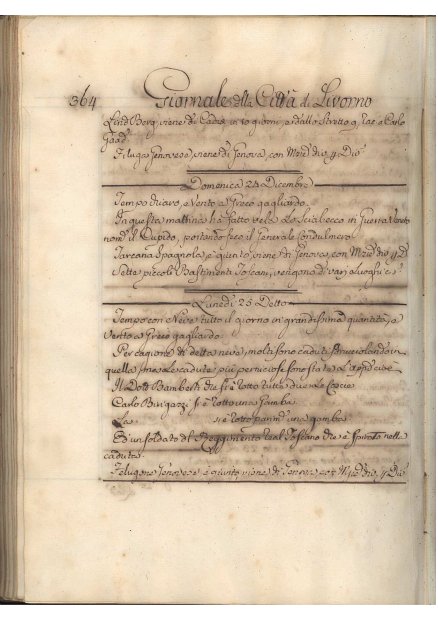 364 Giornale della Città di Livorno
Lind Berg, viene di Cadice in 10 giorni, e dallo Stretto 9, rac. a Carlo
Filuga Genovese, viene di Genova, con Merc. dio, 4 Dio
Domenica 24 Dicembre
Tempo chiaro, e Vento a Greco gagliardo.
In questa mattina ha fatto vela lo Sciabecco in Guerra Veneto
nom. il Cupido, portando seco il Generale Condulmero
Tartana Spagnola, è giunta, viene di Genova, con Merc. dio,
Sette piccoli Bastimenti Toscani, vengono di varj luoghi
Lunedì 25 Detto
Tempo con Neve tutto il giorno in grandissima quantità, e
Vento a Greco gagliardo
Per cagione di detta neve, molti sono caduti sdrucciolando in
quella, ma le cadute più perniciose sono state le appresso
Il Dott. Bamberti che si è rotto tutte due le Coscie
Carlo Binigazzi si è rotto una Gamba
La si è rotto una gamba
Ed un soldato del Reggimento Real Toscano che è spirato nella
caduta
Felugone Genovese è giunto viene di Genova con Merc. dio, 7 Dio